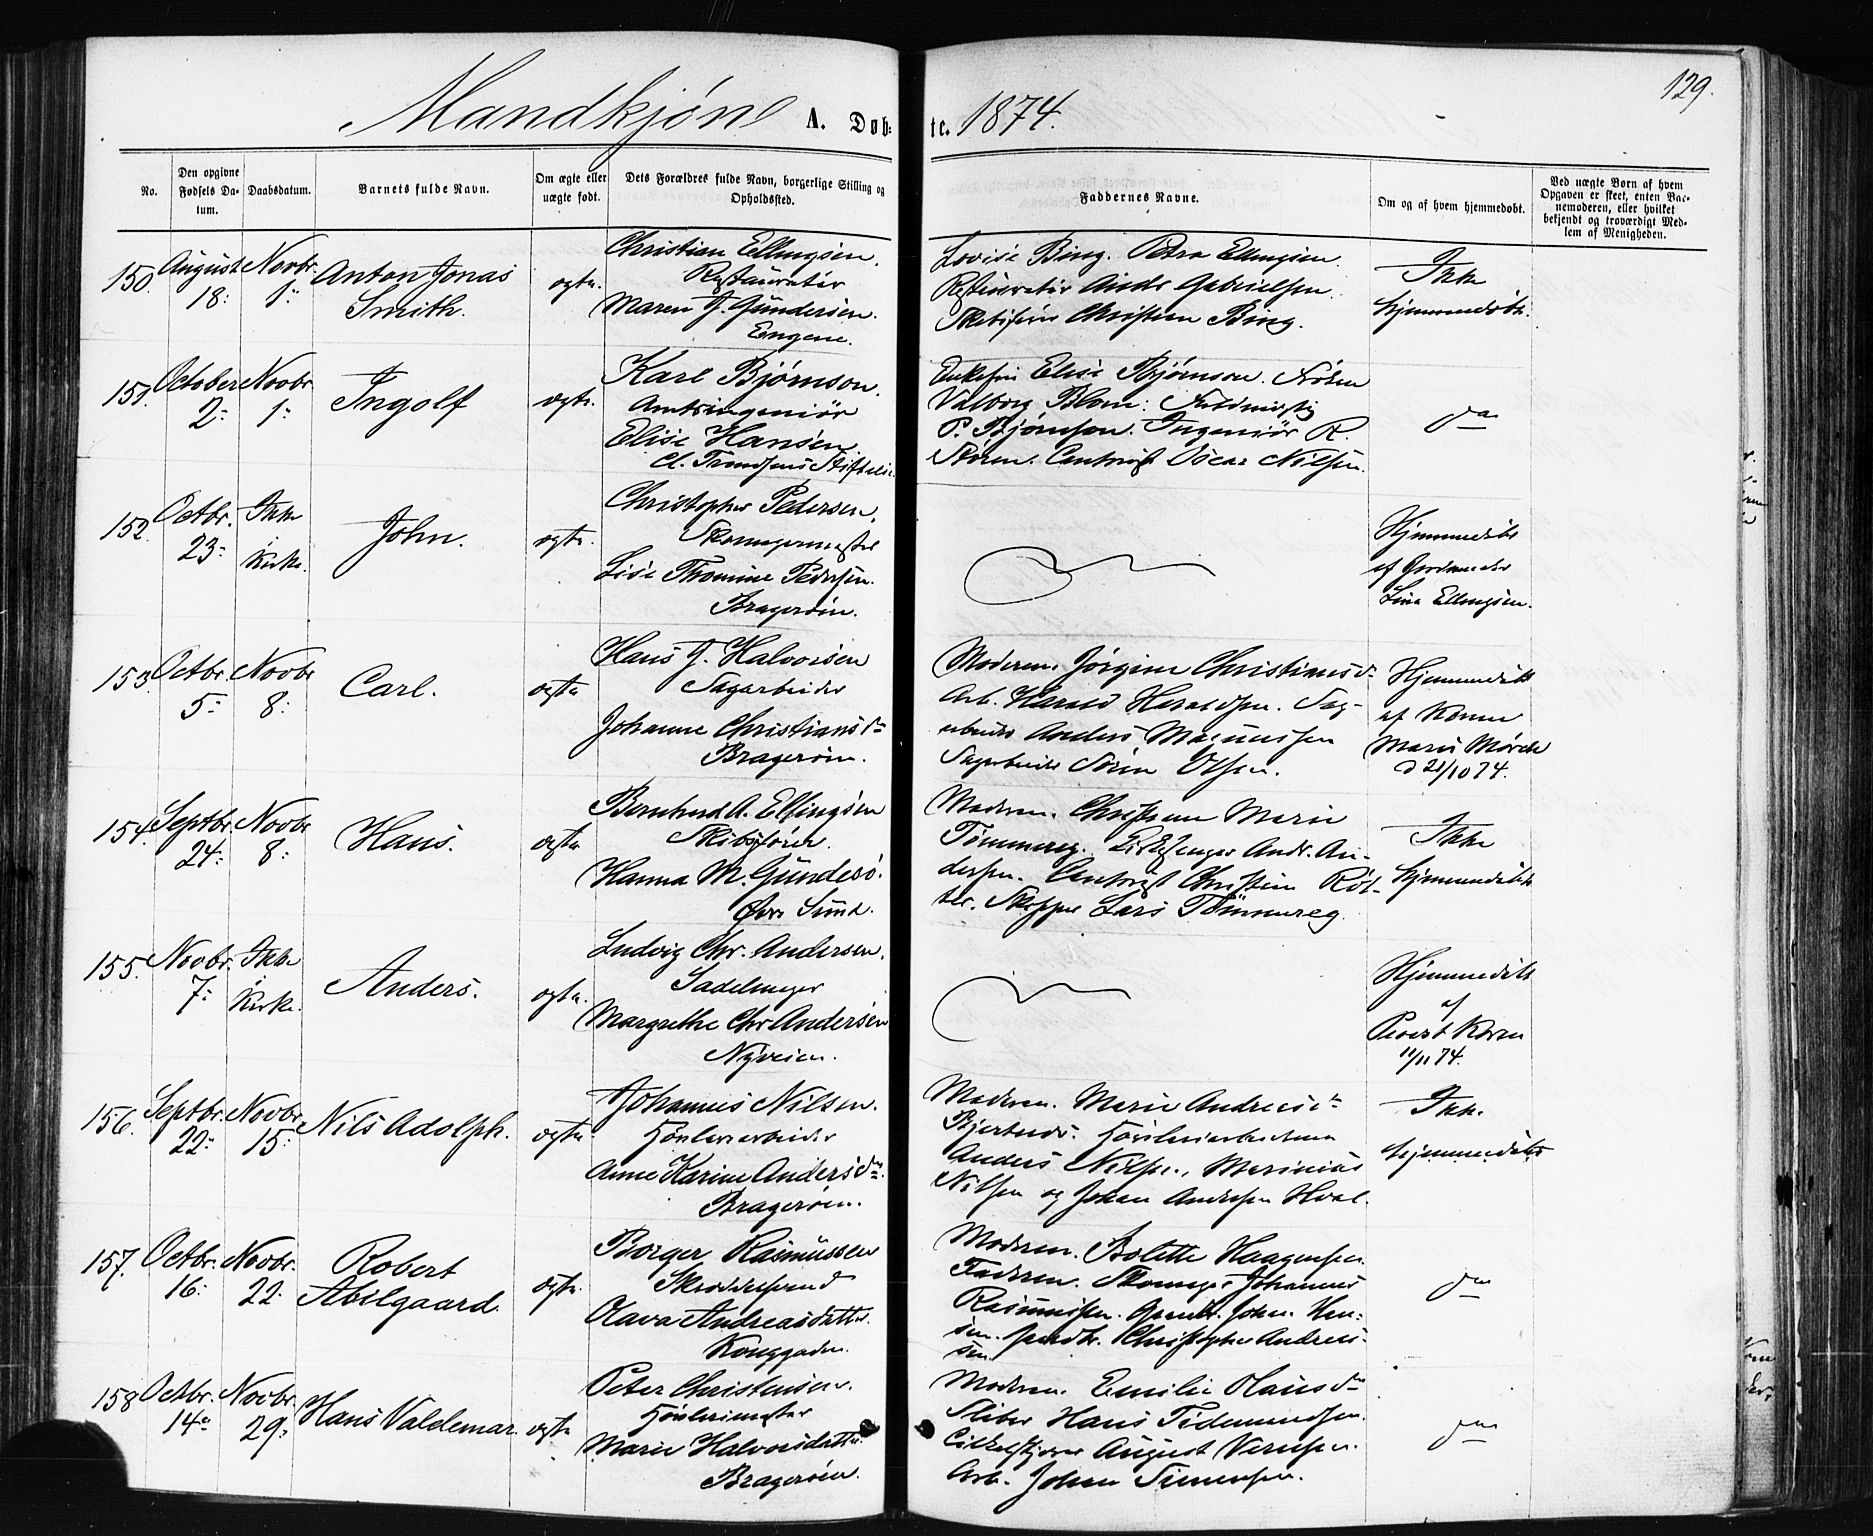 129.
Mandkjøn A. Døb- te. 1874.
No.
Den opgivne Fødsels Da-
tum.
Daabsdatum.
Barnets fulde Navn.
Om ægte eller
uægte født.
Dets Forældres fulde Navn, borgerlige Stilling og
Opholdssted.
Faddernes Navne.
Om og af hvem hjemmedøbt.
Ved uægte Børn af hvem
Opgaven er skeet, enten Bar-
nemoderen, eller hvilket
bekjendt og troværdigt Med-
lem af Menigheden.
150. August Novbr. Anton Jonas
18: 1:
Smith.
ægte.
Christian Ellingsen.
Restauratør
Maren J. Gundersen.
Engene.
Lovise Bing. Petra Ellingsen.
Restauratør Gabrielsen
Christian Bing.
Ikke
hjemmedøbt.
151. October Novbr.
2: 1:
Ingolf
ægte.
Karl Bjørnson.
Amtsingeniør
Elise Hansen
Cl. Trondsens Stiftelse
Elise Bjørnson. Frøken
Valborg Blom.
P. Bjørnson. Ingeniør R.
Støren. Oscar Nilsen.
do
152. Octbr. Ikke
23: i Kirke.
John.
ægte.
Christopher Pedersen.
Skomagermester
Lise Thomine Pedersen.
Bragerøen.
Hjemmedøbt
af Jordmoder
Lina Ellingsen.
153. Octbr. Novbr
5: 8:
Carl.
ægte
Hans J. Halvorsen
Sagarbeider
Johanne Christiansd.
Bragerøen.
Moderen. Jørgine Christiansd.
Arb. Harald Haraldsen. Sag-
arbeider Anders Magnussen
Sagarbeider Søren Olsen.
Hjemmedøbt
af Kone
Maris Mørch
d 21/10 74.
154. Septbr. Novbr
24: 8:
Hans.
ægte
Bernhard A. Ellingsen
Skibsfører.
Hanna M. Gunderso.
Øvre Sund.
Moderen. Marie
Tømmereg. Andr. An-
dersen. Christian Röt-
ter. Skipper Lars Tømmereg.
Ikke
hjemmedøbt
155. Novbr. Ikke
7: i Kirke.
Anders.
ægte.
Ludvig Chr. Andersen.
Sadelmager
Margrethe Chr Andersen
Nyveien.
Hjemmedøbt
af
Provst Koren
11/11 74.
156. Septbr. Novbr.
22: 15:
Nils Adolph.
ægte.
Johannes Nilsen.
Høvleriarbeider
Anne Karine Andersd.
Bragerøen.
Moderen. Marie Andreasd.
Høvleriarbeiderne
Anders Nilsen, Marinius
Nilsen og Johan Andersen Hval.
Ikke
hjemmedøbt
157. Octbr. Novbr.
16: 22.
Robert
Abilgaard.
ægte.
Borger Rasmussen
Skræddersvend
Olava Andreasdatter.
Konggaden.
Moderen. Bolette Haagensen.
Faderen. Skomager Johannes
Rasmussen. Johan Han-
sen. Christopher Andreas-
sen
do
158 Octbr. Novbr.
14: 29:
Hans Valdemar.
ægte
Peter Christensen.
Høvlerimester
Marie Halvorsdatter.
Bragerøen.
Moderen. Emilie Olausd.
Sliber Hans Tidemandsen.
August
Arb. Johan Simensen.
do